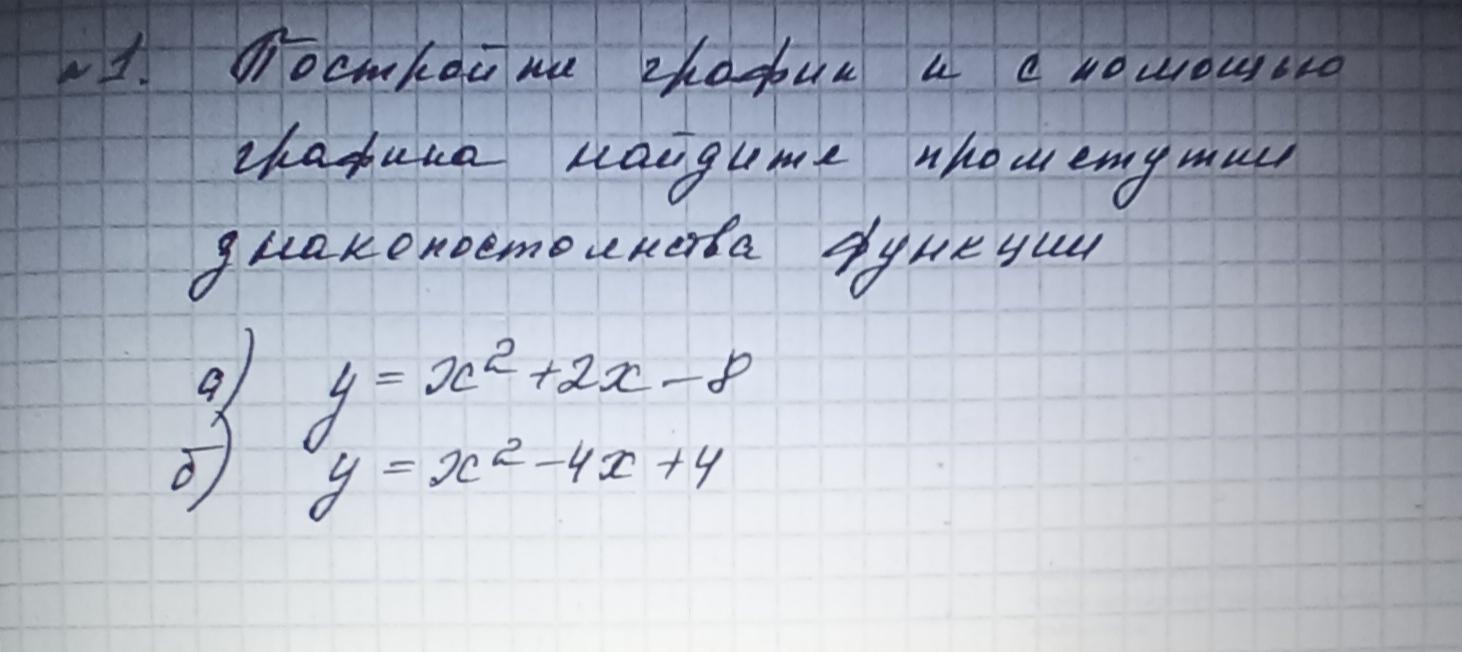 №1. Постройте график и с помощью
графика найдите промежутки
знакопостоянства функции
а) y = x² + 2x - 8
б) y = x² - 4x + 4